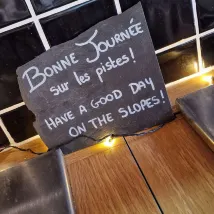 Bonne Journée
sur les pistes!
Have a good day
on the slopes!